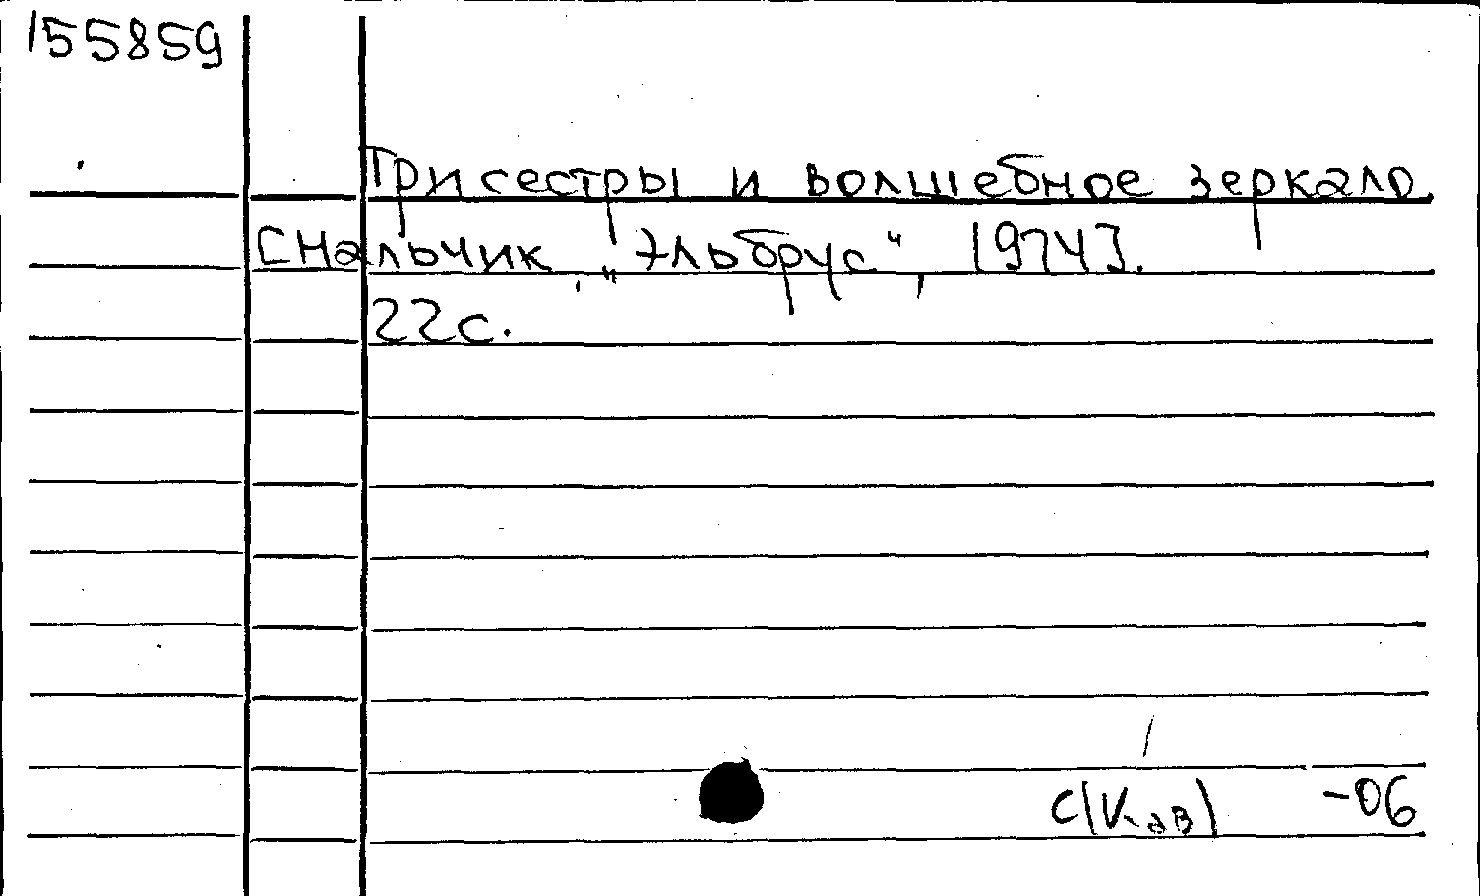 155859
Три сестры и волшебное зеркало.
[Нальчик, „Эльбрус“, 1974].
22с.
С(Кав) -06